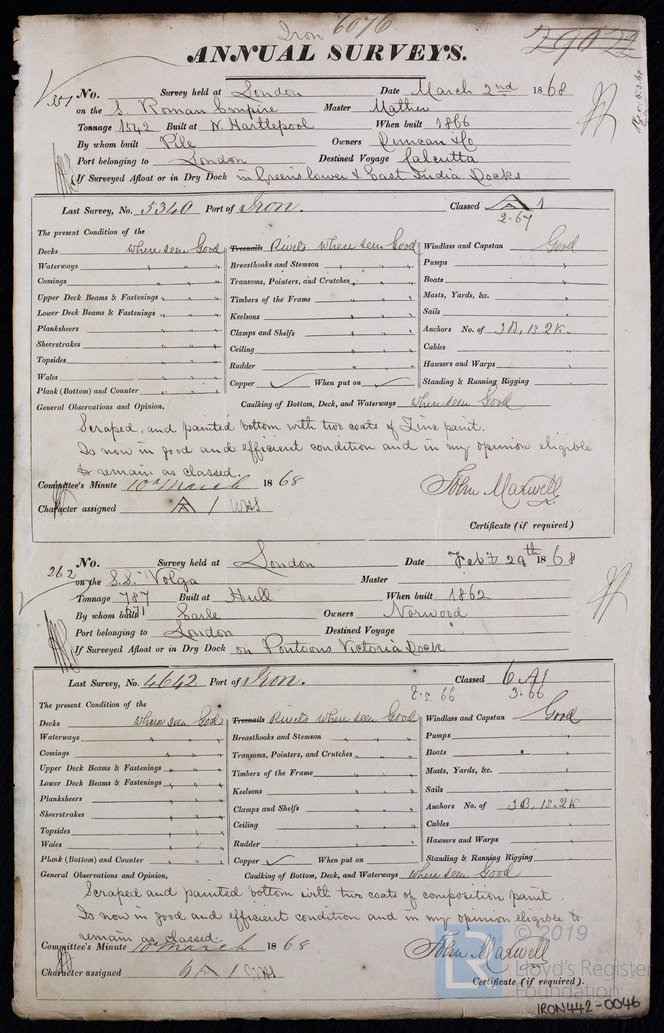 Iron 6076
ANNUAL SURVEYS.
351 No. Survey held at London Date March 2nd 1868
on the S. Roman Empire Master Mather
Tonnage 1542 Built at W. Hartlepool When built 1866
By whom built Pile Owners Duncan & Co
Port belonging to London Destined Voyage Calcutta
If Surveyed Afloat or in Dry Dock in Greens lower & East India Docks
Last Survey, No. 5340 Port of Iron. Classed A 1
2.67
The present Condition of the
Decks where seen Good Treenails Rivets where seen Good Windlass and Capstan Good
Waterways " " " Breasthooks and Stemson " " " Pumps "
Comings " " " Transoms, Pointers, and Crutches " " " Boats "
Upper Deck Beams & Fastenings " " " Timbers of the Frame " " " Masts, Yards, &c. "
Lower Deck Beams & Fastenings " " " Keelsons " " " Sails "
Planksheers " " " Clamps and Shelfs " " " Anchors No. of 3B, 1S. 2K.
Sheerstrakes " " " Ceiling " " " Cables "
Topsides " " " Rudder " " " Hawsers and Warps "
Wales " " " Copper When put on Standing & Running Rigging "
Plank (Bottom) and Counter " " " Caulking of Bottom, Deck, and Waterways where seen Good
General Observations and Opinion,
Scraped, and painted bottom with two coats of Zinc paint.
Is now in good and efficient condition and in my opinion eligible
to remain as classed.
Committee's Minute 10th March 1868 John Maxwell
Character assigned A 1 WHS
Certificate (if required)
262 No. Survey held at London Date Feby 29th 1868
on the S.S. Volga Master
Tonnage 787 Built at Hull When built 1862
671
By whom built Earle Owners Norwood
Port belonging to London Destined Voyage
If Surveyed Afloat or in Dry Dock on Pontoons Victoria Dock
Last Survey, No. 4642 Port of Iron. Classed 6 A1
66 3.66
The present Condition of the
Decks where seen Good Treenails Rivets where seen Good Windlass and Capstan Good
Waterways " " " Breasthooks and Stemson " " " Pumps "
Comings " " " Transoms, Pointers, and Crutches " " " Boats "
Upper Deck Beams & Fastenings " " " Timbers of the Frame " " " Masts, Yards, &c. "
Lower Deck Beams & Fastenings " " " Keelsons " " " Sails "
Planksheers " " " Clamps and Shelfs " " " Anchors No. of 3B, 1S. 2K
Sheerstrakes " " " Ceiling " " " Cables "
Topsides " " " Rudder " " " Hawsers and Warps "
Wales " " " Copper When put on Standing & Running Rigging "
Plank (Bottom) and Counter " " " Caulking of Bottom, Deck, and Waterways where seen Good
General Observations and Opinion,
Scraped and painted bottom with two coats of composition paint.
Is now in good and efficient condition and in my opinion eligible to
remain as classed.
Committee's Minute 10th March 1868 John Maxwell
Character assigned 6 A 1 WHS
Certificate (if required).
© 2019
Lloyd's Register
Foundation
IRON442-0046